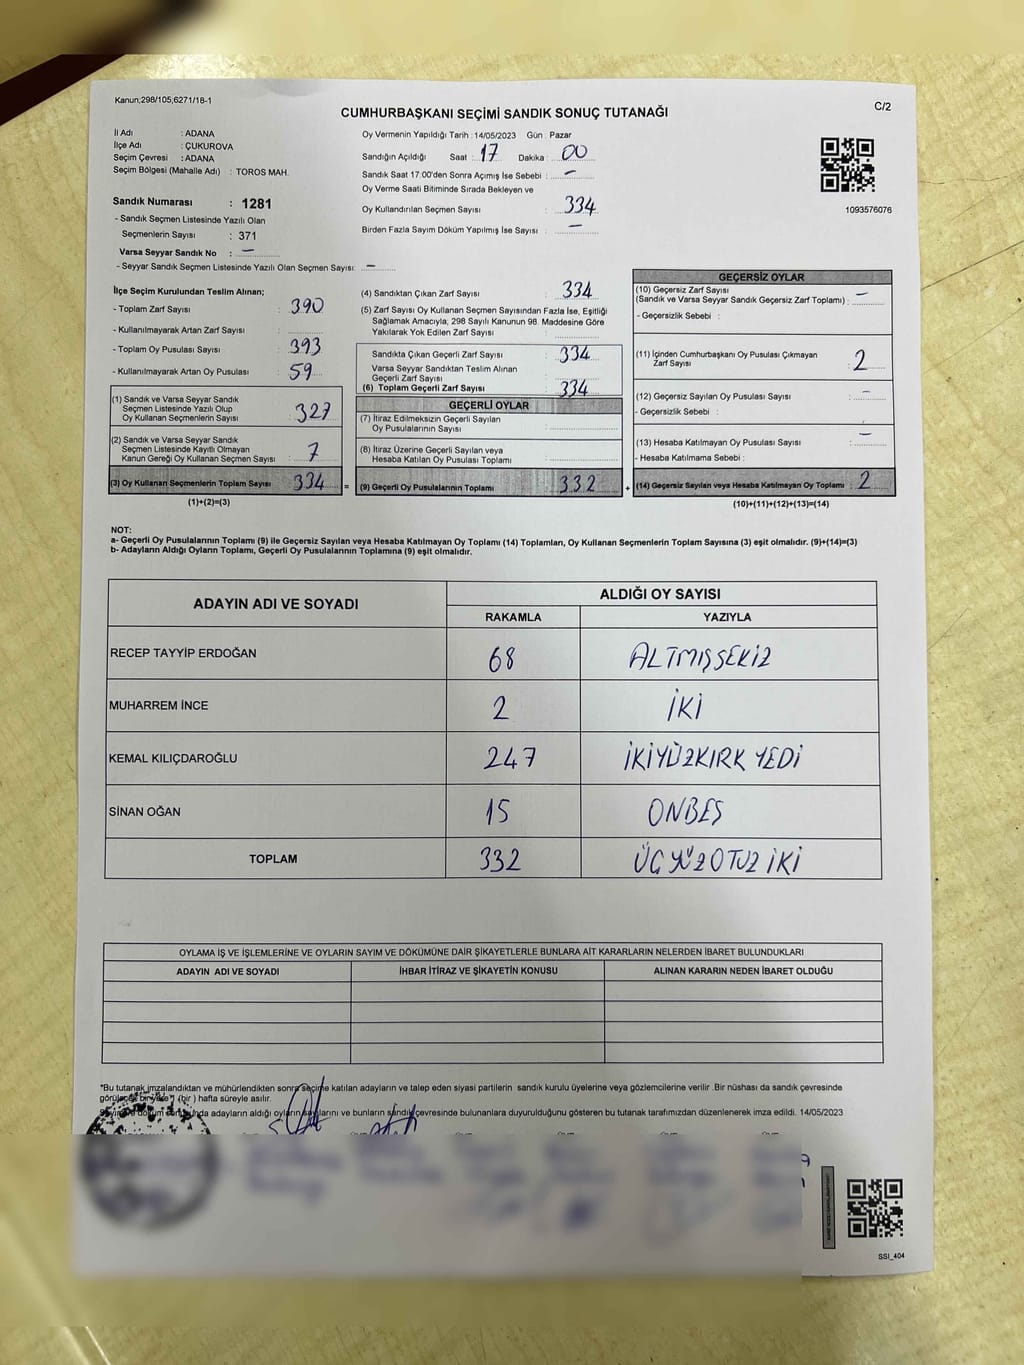 Kanun;298/105,6271/18-1
C/2
CUMHURBAŞKANI SEÇİMİ SANDIK SONUÇ TUTANAĞI
İl Adı : ADANA
İlçe Adı : ÇUKUROVA
Seçim Çevresi : ADANA
Seçim Bölgesi (Mahalle Adı) : TOROS MAH.
Sandık Numarası : 1281
- Sandık Seçmen Listesinde Yazılı Olan
Seçmenlerin Sayısı : 371
Varsa Seyyar Sandık No : —
- Seyyar Sandık Seçmen Listesinde Yazılı Olan Seçmen Sayısı: —
Oy Vermenin Yapıldığı Tarih : 14/05/2023 Gün : Pazar
Sandığın Açıldığı Saat : 17 Dakika : 00
Sandık Saat 17:00'den Sonra Açımış İse Sebebi : —
Oy Verme Saati Bitiminde Sırada Bekleyen ve
Oy Kullandırılan Seçmen Sayısı : 334
Birden Fazla Sayım Döküm Yapılmış İse Sayısı : —
1093576076
İlçe Seçim Kurulundan Teslim Alınan;
- Toplam Zarf Sayısı : 390
- Kullanılmayarak Artan Zarf Sayısı :
- Toplam Oy Pusulası Sayısı : 393
- Kullanılmayarak Artan Oy Pusulası : 59
(1) Sandık ve Varsa Seyyar Sandık
Seçmen Listesinde Yazılı Olup
Oy Kullanan Seçmenlerin Sayısı : 327
(2) Sandık ve Varsa Seyyar Sandık
Seçmen Listesinde Kayıtlı Olmayan
Kanun Gereği Oy Kullanan Seçmen Sayısı : 7
(3) Oy Kullanan Seçmenlerin Toplam Sayısı : 334 =
(1)+(2)=(3)
(4) Sandıktan Çıkan Zarf Sayısı : 334
(5) Zarf Sayısı Oy Kullanan Seçmen Sayısından Fazla İse, Eşitliği
Sağlamak Amacıyla, 298 Sayılı Kanunun 98. Maddesine Göre
Yakılarak Yok Edilen Zarf Sayısı :
Sandıkta Çıkan Geçerli Zarf Sayısı : 334
Varsa Seyyar Sandıktan Teslim Alınan
Geçerli Zarf Sayısı :
(6) Toplam Geçerli Zarf Sayısı : 334
GEÇERLİ OYLAR
(7) İtiraz Edilmeksizin Geçerli Sayılan
Oy Pusulalarının Sayısı :
(8) İtiraz Üzerine Geçerli Sayılan veya
Hesaba Katılan Oy Pusulası Toplamı :
(9) Geçerli Oy Pusulalarının Toplamı : 332 +
GEÇERSİZ OYLAR
(10) Geçersiz Zarf Sayısı
(Sandık ve Varsa Seyyar Sandık Geçersiz Zarf Toplamı) : —
- Geçersizlik Sebebi :
(11) İçinden Cumhurbaşkanı Oy Pusulası Çıkmayan
Zarf Sayısı : 2
(12) Geçersiz Sayılan Oy Pusulası Sayısı : —
- Geçersizlik Sebebi :
(13) Hesaba Katılmayan Oy Pusulası Sayısı : —
- Hesaba Katılmama Sebebi :
(14) Geçersiz Sayılan veya Hesaba Katılmayan Oy Toplamı : 2
(10)+(11)+(12)+(13)=(14)
NOT:
a- Geçerli Oy Pusulalarının Toplamı (9) ile Geçersiz Sayılan veya Hesaba Katılmayan Oy Toplamı (14) Toplamları, Oy Kullanan Seçmenlerin Toplam Sayısına (3) eşit olmalıdır. (9)+(14)=(3)
b- Adayların Aldığı Oyların Toplamı, Geçerli Oy Pusulalarının Toplamına (9) eşit olmalıdır.
ADAYIN ADI VE SOYADI
ALDIĞI OY SAYISI
RAKAMLA YAZIYLA
RECEP TAYYİP ERDOĞAN 68 ALTMIŞSEKİZ
MUHARREM İNCE 2 İKİ
KEMAL KILIÇDAROĞLU 247 İKİYÜZKIRK YEDİ
SİNAN OĞAN 15 ONBEŞ
TOPLAM 332 ÜÇ YÜZ OTUZ İKİ
OYLAMA İŞ VE İŞLEMLERİNE VE OYLARIN SAYIM VE DÖKÜMÜNE DAİR ŞİKAYETLERLE BUNLARA AİT KARARLARIN NELERDEN İBARET BULUNDUKLARI
ADAYIN ADI VE SOYADI İHBAR İTİRAZ VE ŞİKAYETİN KONUSU ALINAN KARARIN NEDEN İBARET OLDUĞU
*Bu tutanak imzalandıktan ve mühürlendikten sonra seçime katılan adayların ve talep eden siyasi partilerin sandık kurulu üyelerine veya gözlemcilerine verilir .Bir nüshası da sandık çevresinde
(bir) hafta süreyle asılır.
adayların aldığı oyların sayılarını ve bunların sandık çevresinde bulunanlara duyurulduğunu gösteren bu tutanak tarafımızdan düzenlenerek imza edildi. 14/05/2023
SSI_404